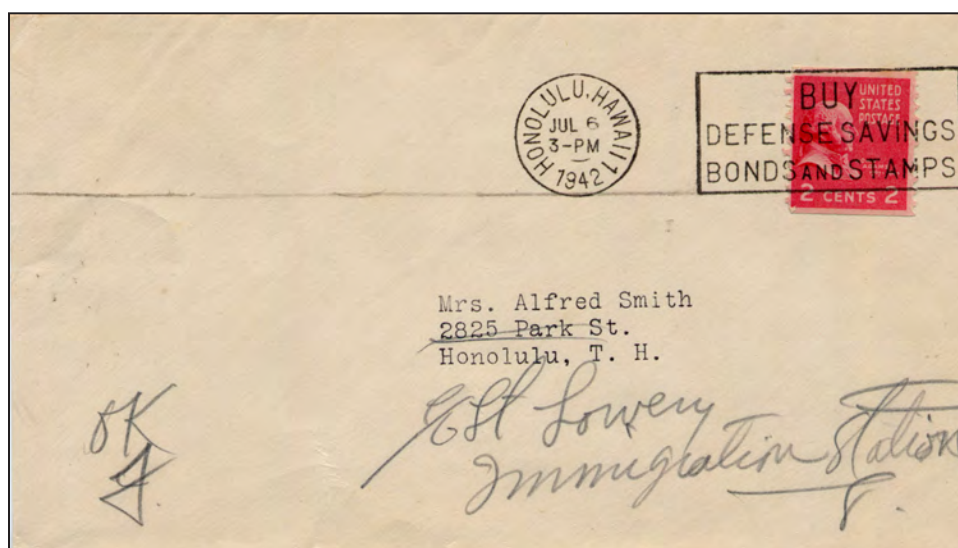 HONOLULU, HAWAII 1
JUL 6
3-PM
1942
BUY
DEFENSE SAVINGS
BONDS AND STAMPS
UNITED
STATES
POSTAGE
2 CENTS 2
Mrs. Alfred Smith
2825 Park St.
Honolulu, T. H.
Lowery
Immigration Station
OK